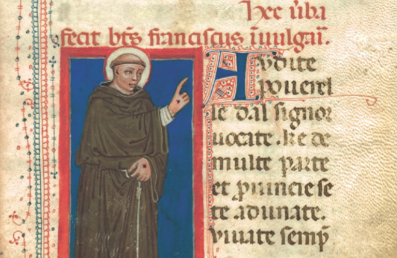 Hec ūba
fecit btūs franciscus ī uulgaū.
Audite
pouerel
le dal signor
uocate. ke de
multe parte
et ꝓuincie se
te adunate.
Vivate semp̄